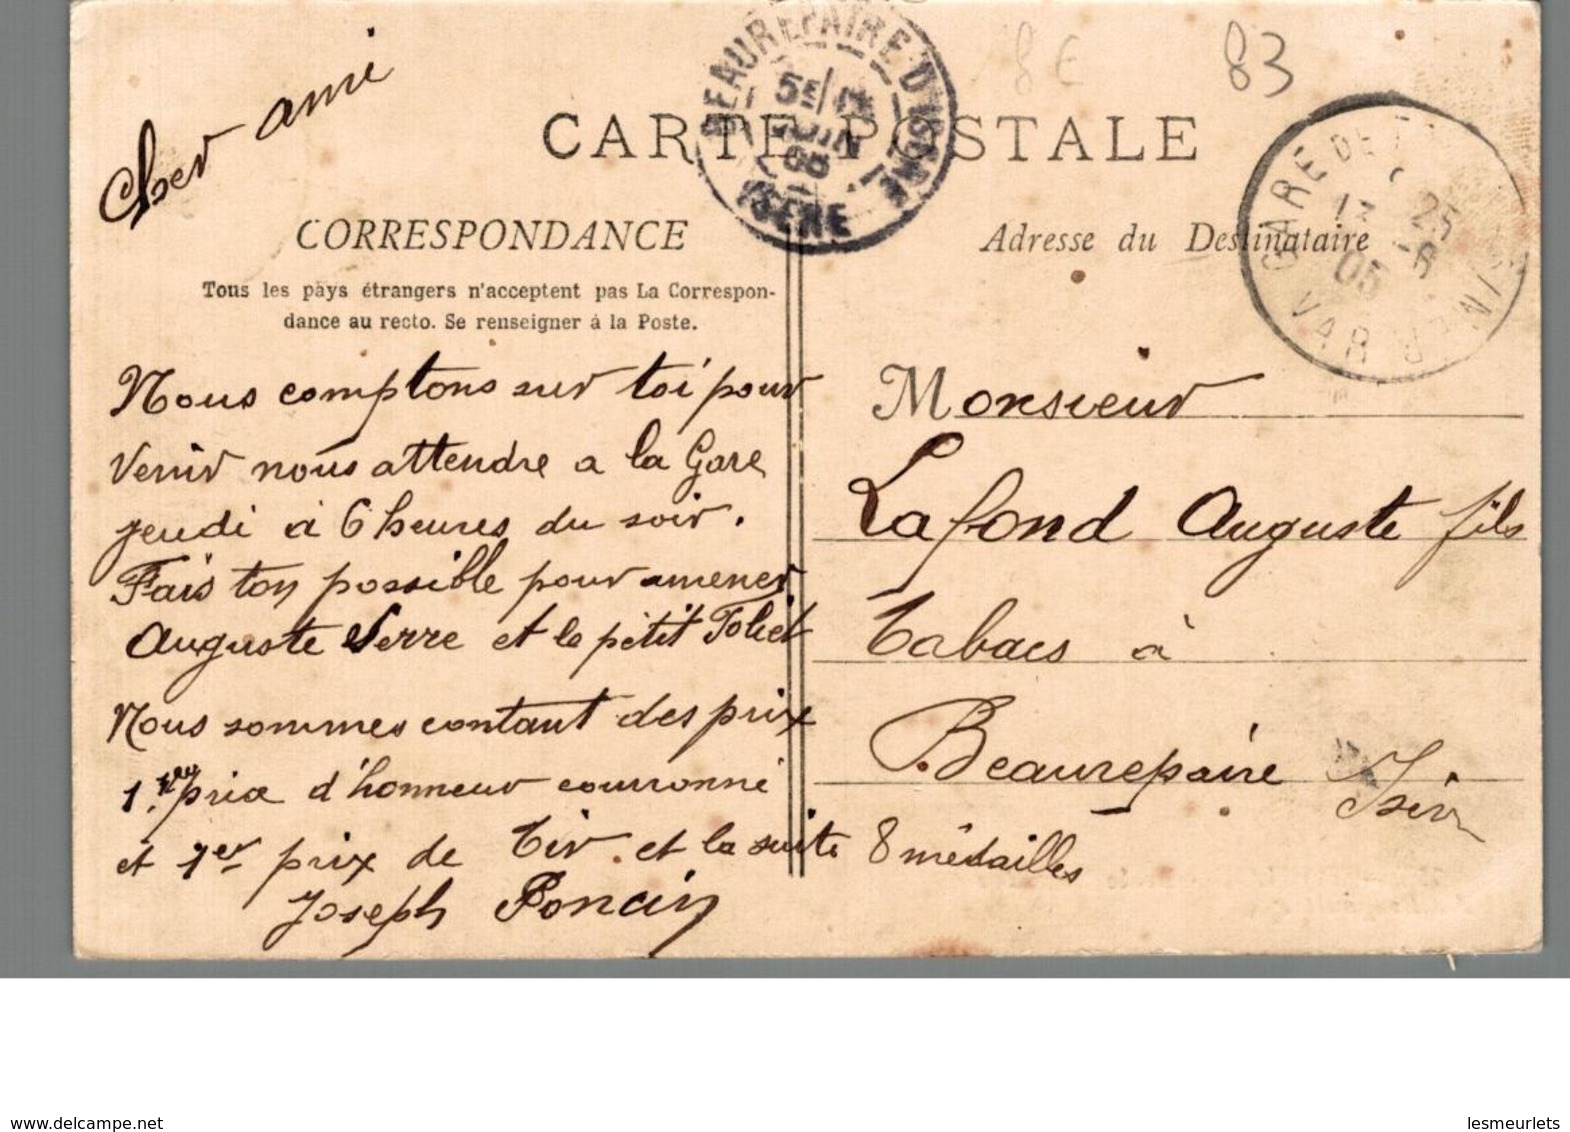 Cher ami
8E
83
CARTE POSTALE
BEAUREPAIRE D'ISERE
ISERE
JUIN
GARE DE
25
-6
05
VAR
CORRESPONDANCE
Tous les pays étrangers n'acceptent pas La Correspon-
dance au recto. Se renseigner à la Poste.
Nous comptons sur toi pour
venir nous attendre a la Gare
jeudi à 6 heures du soir.
Fais ton possible pour amener
Auguste Serre et le petit
Nous sommes contant des prix
1er prix d'honneur courronné
et 1er prix de Tir et la suite 8 médailles
Joseph Poncin
Adresse du Destinataire
Monsieur
Lafond Auguste fils
Tabacs à
Beaurepaire Isère
delcampe.net
lesmeurlets